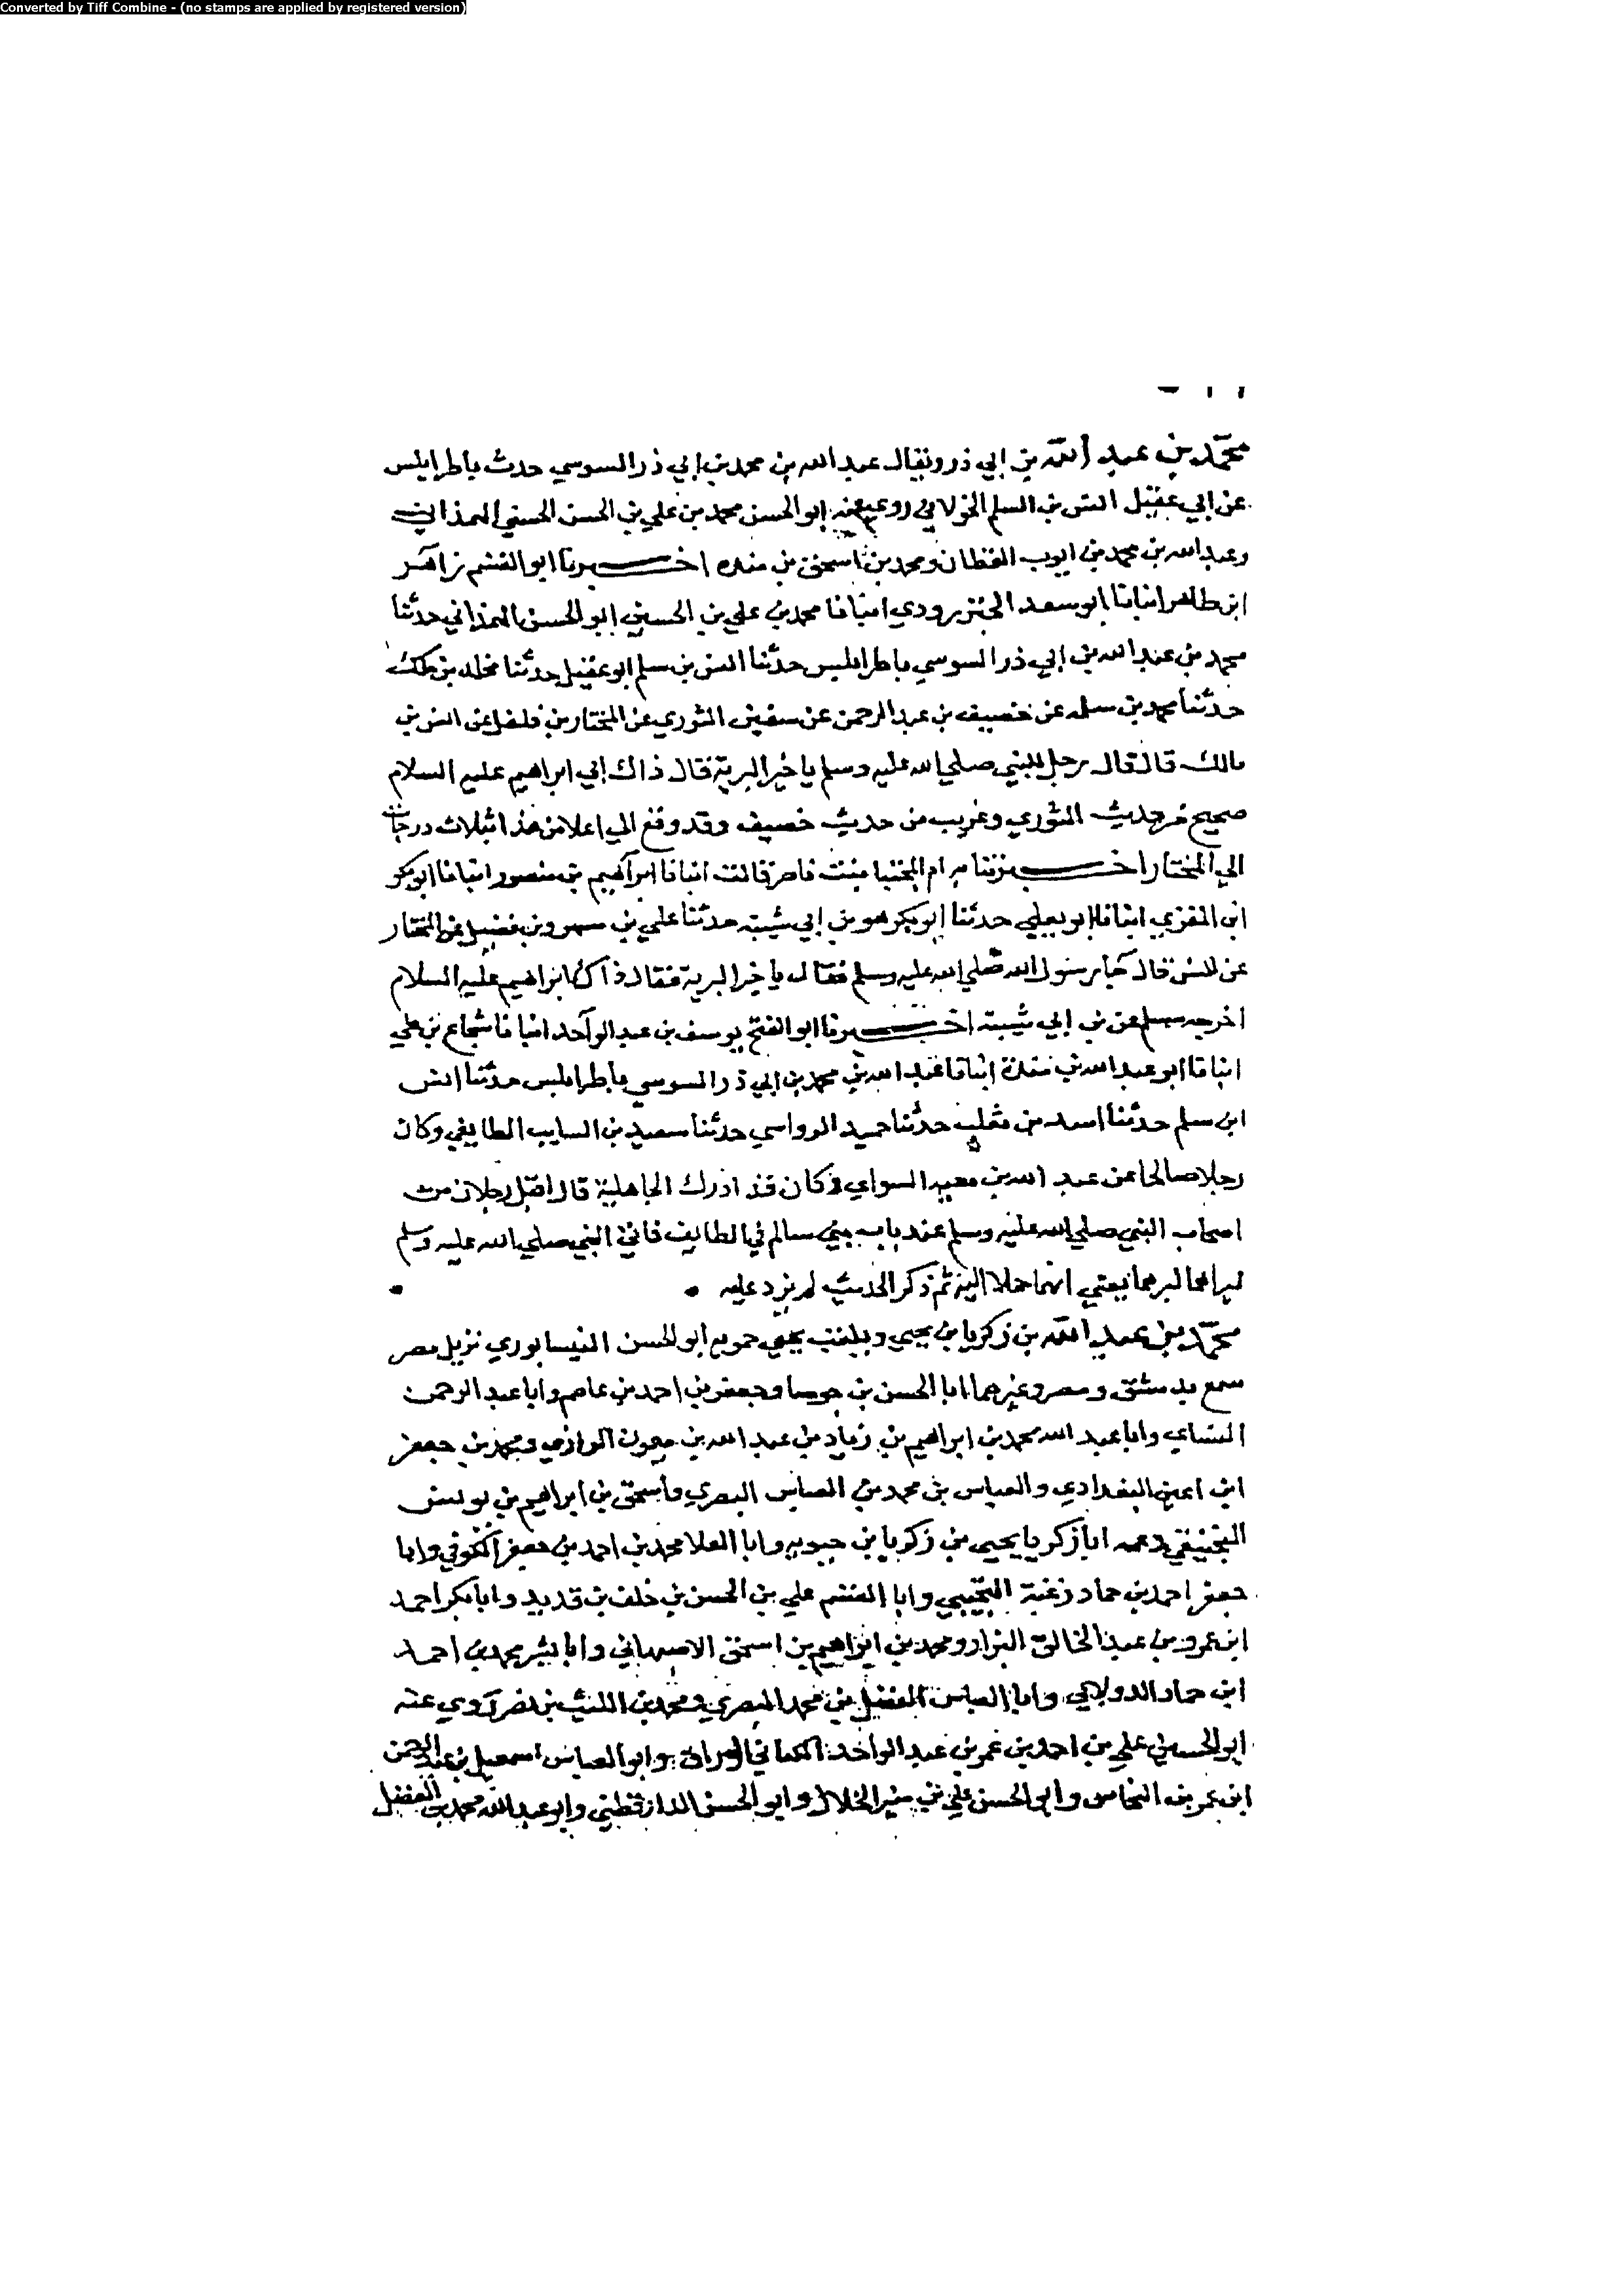 Converted by Tiff Combine - (no stamps are applied by registered version)
محمد بن عبد الله بن ابي ذر ويقال عبد الله بن محمد بن ابي ذر السوسي حدث باطرابلس
عن ابي عقيل انس بن السلم الخولاني روى عنه ابو الحسن محمد بن علي بن الحسن الحسني الهمذاني
وعبد الله بن محمد بن ايوب القطان ومحمد بن اسحق بن منده اخبرنا ابو القسم زاهر
ابن طاهر انبانا ابو سعد الجنزرودي انبانا محمد بن علي بن الحسين ابو الحسن الهمذاني حدثنا
محمد بن عبد الله بن ابي ذر السوسي باطرابلس حدثنا انس بن سلم ابو عقيل حدثنا مخلد بن ملك
حدثنا محمد بن سلمه عن خصيف بن عبد الرحمن عن سفين الثوري عن المختار بن فلفل عن انس بن
مالك قال قال رجل للنبي صلي الله عليه وسلم يا خير البرية قال ذاك ابي ابراهيم عليه السلام
صحيح من حديث الثوري وغريب من حديث خصيف وقد وقع الي اعلا من هذا بثلاث درجات
الي المختار اخبرتنا به ام المجتبا بنت ناصر قالت انبانا ابراهيم بن منصور انبانا ابو بكر
ابن المقري انبانا ابو يعلي حدثنا ابو بكر هو بن ابي شيبة حدثنا علي بن مسهر وبن فضيل عن المختار
عن انس قال جا رسول الله صلي الله عليه وسلم فقال يا خير البرية فقال ذاك ابراهيم عليه السلام
اخرجه مسلم عن بن ابي شيبة اخبرنا ابو الفتح يوسف بن عبد الواحد انبانا شجاع بن علي
انبانا ابو عبد الله بن منده انبانا عبد الله بن محمد بن ابي ذر السوسي باطرابلس حدثنا انس
ابن سلم حدثنا اسد من حدثنا حميد الرواسي حدثنا سعيد بن السايب الطايفي وكان
رجلا صالحا عن عبد الله بن معيه السواي وكان قد ادرك الجاهلية قال رجلان من
اصحاب النبي صلي الله عليه وسلم عند باب بني سالم في الطايف فاتي النبي صلي الله عليه وسلم
يعني انهما حملا اليه ثم ذكر الحديث لم يزد عليه
محمد بن عبد الله بن زكريا بن يحيي ويلقب يحيي حيويه ابو الحسن النيسابوري نزيل مصر
سمع بدمشق ومصر وغيرهما ابا الحسن بن جوصا وجعفر بن احمد بن عاصم وابا عبد الرحمن
النساي وابا عبد الله محمد بن ابراهيم بن زياد بن عبد الله بن ميمون الرازي ومحمد بن جعفر
ابن اعين البغدادي والعباس بن محمد بن العباس البصري واسحق بن ابراهيم بن يونس
المنجنيقي وعمه ابا زكريا يحيي بن زكريا بن حيويه وابا العلا محمد بن احمد بن جعفر الكوفي وابا
جعفر احمد بن حماد زغبة التجيبي وابا القسم علي بن الحسن بن خلف بن قديد وابا بكر احمد
ابن عمرو بن عبد الخالق البزار ومحمد بن ابراهيم بن اسحق الاصبهاني وابا بشر محمد بن احمد
ابن حماد الدولابي وابا العباس الفضل بن محمد البصري ومحمد بن الليث بن نصر روي عنه
ابو الحسين علي بن احمد بن عمر بن عبد الواحد وابو العباس اسمعيل بن عبد الرحمن
ابن عمر بن النحاس وابو الحسن علي بن منير الخلال وابو الحسن الدارقطني وابو عبد الله محمد بن الفضل